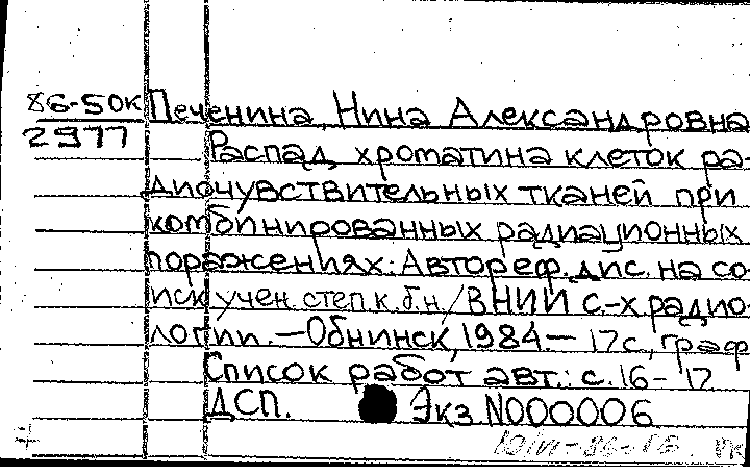 86-50К Печенина, Нина Александровна
2977 Распад хроматина клеток ра-
диочувствительных тканей при
комбинированных радиационных
поражениях: Автореф. дис. на со-
иск учен. степ к. б. н/ВНИИ с.-х радио-
логии. — Обнинск, 1984 — 17с, граф
Список работ авт.: с. 16 - 17.
ДСП. Экз N000006